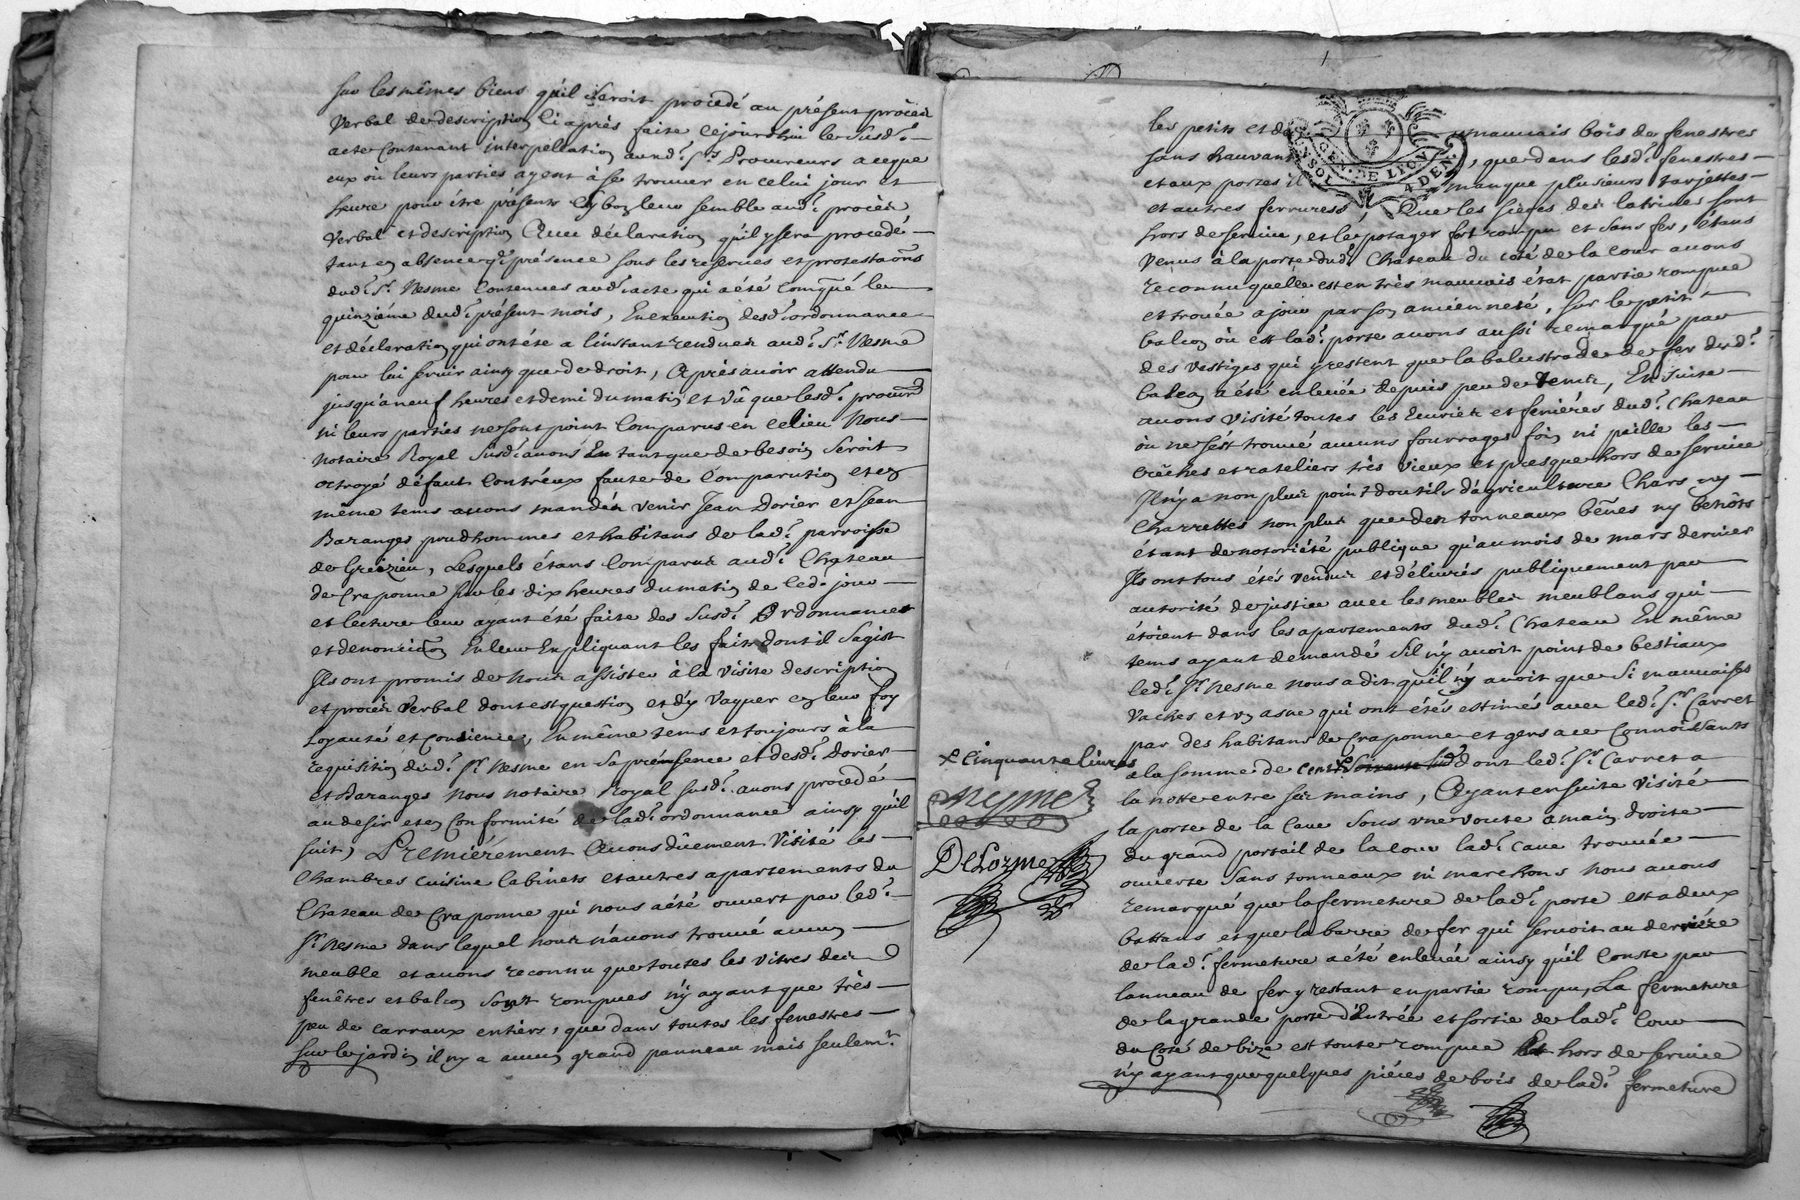 sur les mêmes biens qu'il seroit procédé au présent procès
Verbal de description Ci après faite cejourd'hui le susd.t
acte Contenant interpellation auxd.s Srs Procureurs a ceque
eux où leurs parties ayent à se trouver en celui jour et
heure pour être présents sy bon leur semble aud.t procès
Verbal et description Avec déclaration qu'il y sera procédé
tant en absence q.e présence sous les reserves et protestaôns
dud.t Sr. Nesme Contenues aud.t acte qui a été Comqué le
quinzième dud.t présent mois, En execution desd.s ordonnance
et déclaration qui ont été a l'instant rendues aud.t Sr. Nesme
pour lui servir ainsy que de droit, Après avoir attendu
jusqu'a neuf heures et demi du matin et vû que lesd.s procurs
ni leurs parties ne sont point Comparus en ce lieu Nous
Notaire Royal susd.t avons En tant que de besoin Seroit
octroyé défaut Contr'eux faute de Comparution et en
même tems avons mandés venir Jean Dorier et Jean
Baranges prudhommes et habitans de lad.e parroisse
de Grézieu, Lesquels étans Comparus aud.t Château
de Craponne sur les dix heures du matin de ced. jour
et lecture leur ayant été faite des susd.s Ordonnances
et denonciôn En leur Expliquant les faits dont il s'agist
Ils ont promis de nous assister à la visite description
et procès Verbal dont est question et d'y Vaquer en leur foy
Loyauté et Consience, En même tems et toujours à la
requisition dud.t Sr Nesme en sa présence et desd.s Dorier
et Baranges Nous notaire Royal susd.t avons procédé
au desir et en Conformité de lad.e ordonnance ainsy qu'il
suit, Premiérement Avons dûement Visité les
Chambres cuisine Cabinets et autres apartements du
Chateau de Craponne qui nous a été ouvert par led.t
Sr Nesme dans lequel nous n'avons trouvé aucun
meuble et avons reconnu que toutes les vitres des
fenêtres et balcon sont rompues n'y ayant que très
peu de carraux entiers, que dans toutes les fenestres
sur le jardin il n'y a aucun grand panneau mais seulemt
les petits et de mauvais bois de fenestres
sans hauvant, que dans lesd.s fenestres
et aux portes il manque plusieurs tarjettes
et autres ferrures, Que les sièges des latrines sont
hors de service, et le potager fort rompu et sans fer, étans
Venus à la porte dud.t Chateau du coté de la Cour avons
reconnu qu'elle est en très mauvais état partie rompue
et trouée a jour par son ancienneté, sur le petit
balcon où est lad.e porte avons aussi remarqué par
des vestiges qui y restent que la balustrade de fer dud.t
balcon a été enlevée depuis peu de tems, En suite
avons visité toutes les Ecuries et feniéres dud.t Chateau
où ne s'est trouvé aucuns fourrages foin ni paille les
crêches et rateliers très vieux et presque hors de service
Il n'y a non plus point d'outils d'agriculture Chars ny
Charrettes non plus que des tonneaux bênes ny benôts
étant de notoriété publique qu'au mois de mars dernier
Ils ont tous étés vendus et délivrés publiquement par
autorité de justice avec les meubles meublans qui
étoient dans les apartements dud.t Chateau En même
tems ayant demandé s'il n'y avoit point de bestiaux
led.t Sr Nesme nous a dit qu'il n'y avoit que Si mauvaises
Vaches et un asne qui ont étés estimés avec led.t Sr. Carret
par des habitans de Craponne et gens a ce Connoissants
a la somme de cent dont led.t Sr Carret a
la notte entre ses mains, Ayant ensuite visité
la porte de la Cave sous une voute a main droite
du grand portail de la Cour lad.e cave trouvée
ouverte sans tonneaux ni marchons Nous avons
remarqué que la fermeture de lad.e porte est a deux
battans et que la barre de fer qui servoit au derriére
de lad.e fermeture a été enlevée ainsy qu'il Conste par
l'anneau de fer y restant en partie rompu, La fermeture
de la grande porte d'Entrée et sortie de lad.e Cour
du Coté de bize est toute rompue et hors de service
n'y ayant que quelques piéces de bois de lad.e fermeture
x Cinquante livres
Nesme
DeLorme
GEN. DE LYON
UN SOL 4 DEN